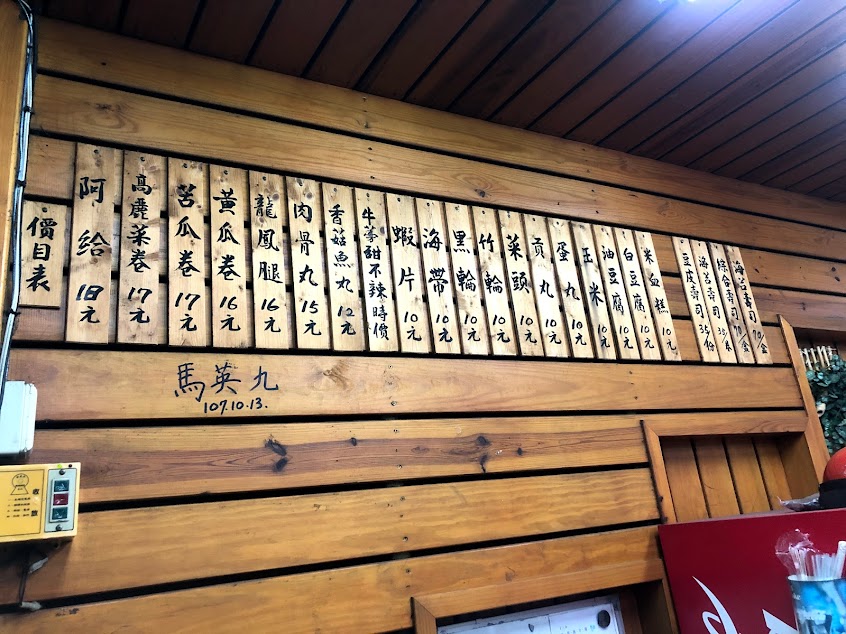 價目表
阿給 18元
高麗菜卷 17元
苦瓜卷 17元
黃瓜卷 16元
龍鳳腿 16元
肉骨丸 15元
香菇魚丸 12元
牛蒡甜不辣 時價
蝦片 10元
海帶 10元
黑輪 10元
竹輪 10元
菜頭 10元
貢丸 10元
蛋丸 10元
玉米 10元
油豆腐 10元
白豆腐 10元
米血糕 10元
豆皮壽司 35/份
海苔壽司 35/條
綜合壽司 70/盒
海苔壽司 70/盒
馬英九
107.10.13.
收
放